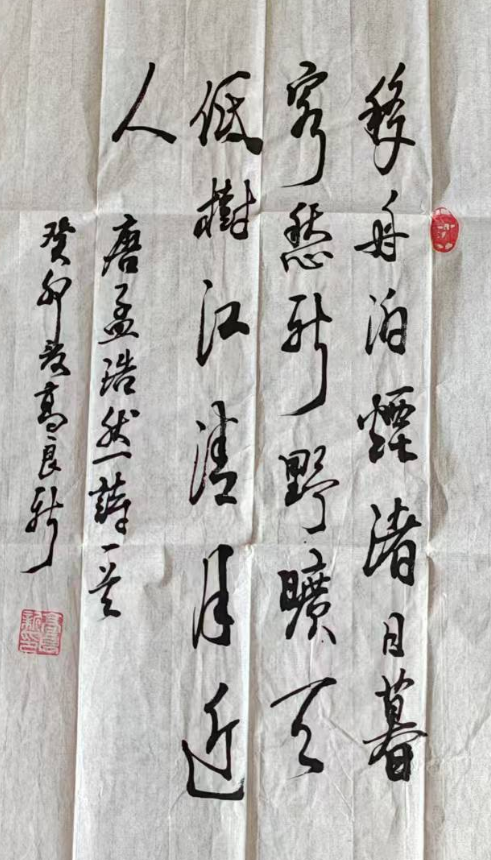 移舟泊煙渚日暮
客愁新野曠天
低樹江清月近
人
唐孟浩然詩一首
癸卯夏高良新